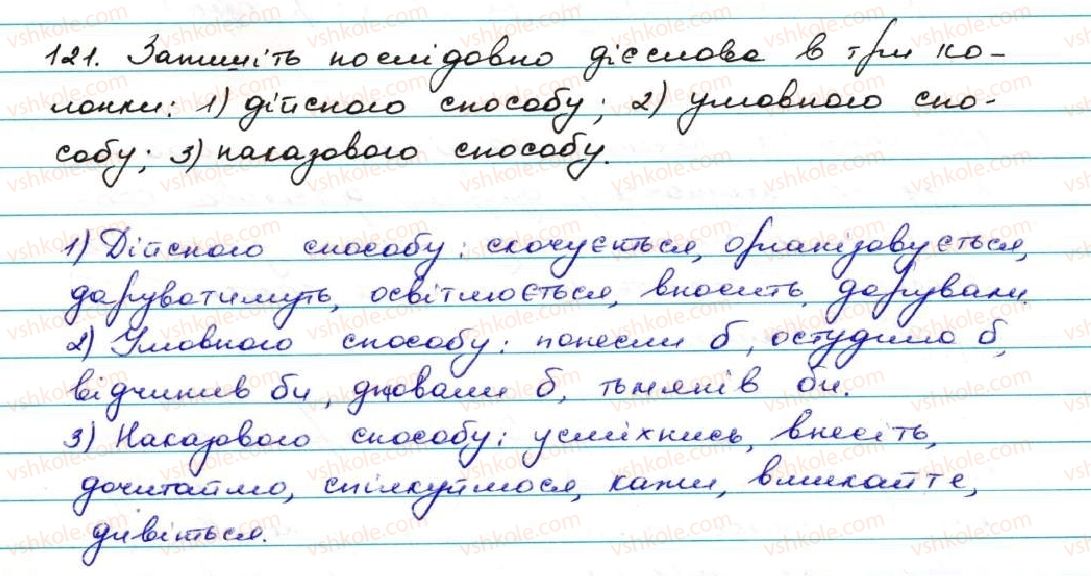 121. Запишіть послідовно дієслова в три ко-
лонки: 1) дійсного способу; 2) умовного спо-
собу; 3) наказового способу.
1) Дійсного способу: скочується, організовується,
даруватимуть, освітлюється, вносить, дарували.
2) Умовного способу: понесли б, остудило б,
відчинив би, дбали б, тьмянів би.
3) Наказового способу: усміхнись, внесіть,
дочитаймо, спілкуймося, кажи, вмикайте,
дивіться.